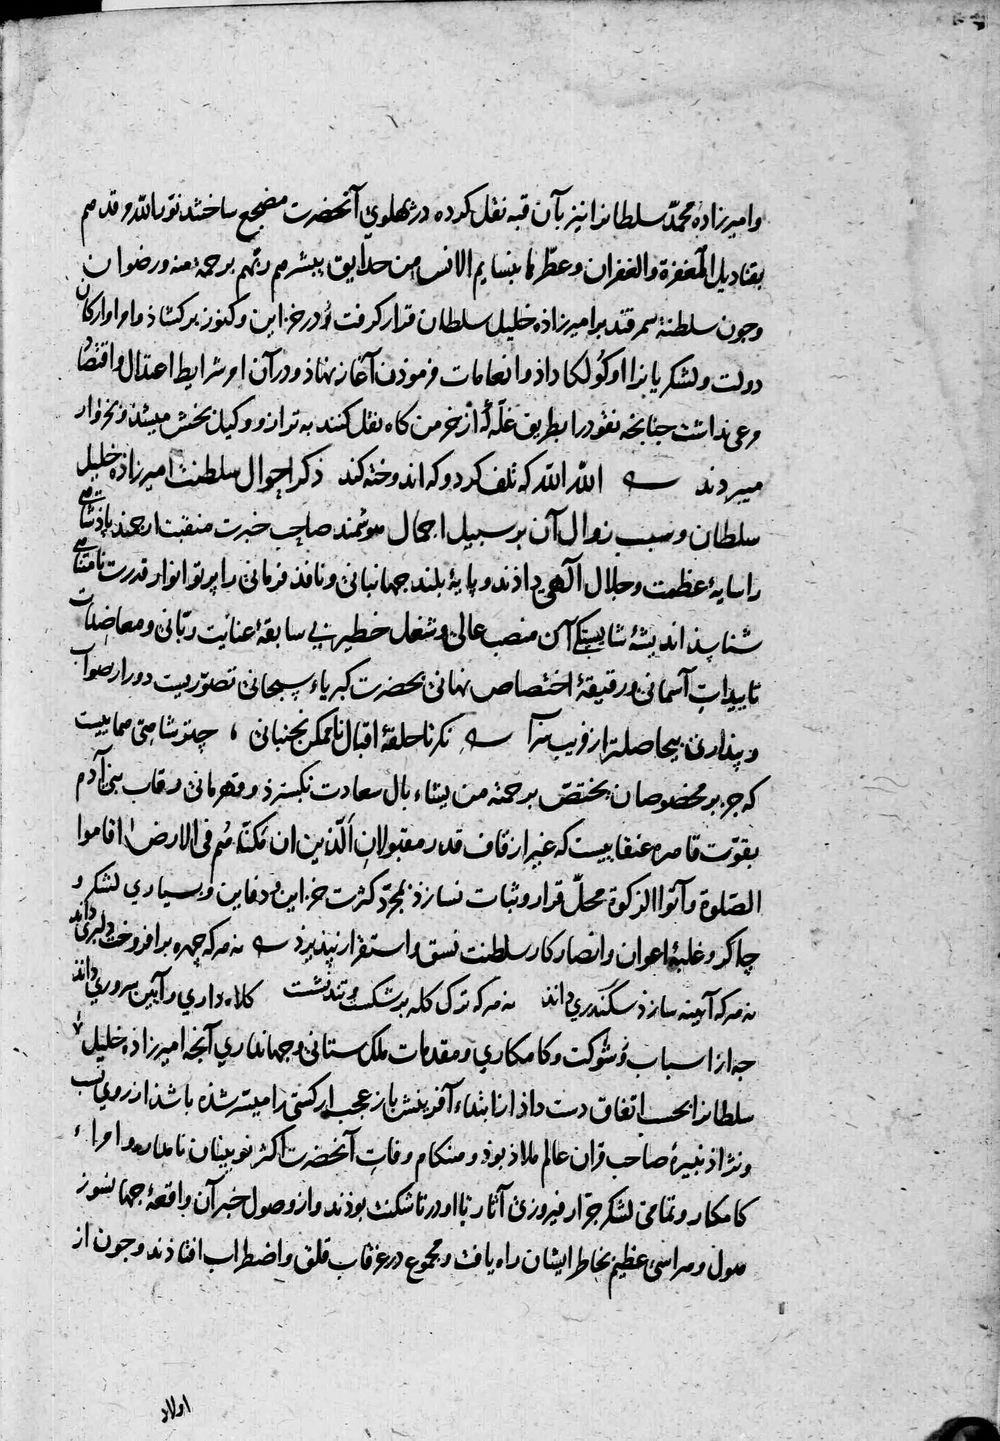 وامیرزاده محمد سلطانرا نیز بآن قبه نقل کرده در پهلوی آنحضرت مضجع ساختند نور الله مرقدهم
بقنادیل المغفرة والغفران وعطر بنسایم الانس من حدایق یبشرهم ربهم برحمة منه ورضوان
وجون سلطنة سمرقند بر امیرزاذه خلیل سلطان قرار کرفت در خزاین وکنوز برکشاذ وامرا وارکان
دولت ولشکریانرا اوکولکا داذ وانعامات فرموذن آغاز نهاذ ودر آن امر شرایط اعتدال واقتصاد
مرعی نداشت جنانجه نقود را بطریق غله که از خرمن کاه نقل کنند به ترازو وکیل بخش میشذ وبخروار
میبردند الله الله که تلف کرد و که اندوخته کند ذکر احوال سلطنت امیرزاذه خلیل
سلطان وسبب زوال آن بر سبیل اجمال هوشمند صاحب خبرت منقبت ارجمند پاذشاهی
را سایهٔ عظمت وجلال آلهی داذند وپایهٔ بلند جهانبانی ونافذ فرمانی را پرتو انوار قدرت نامتناهی
شناسذ اندیشهٔ شایستکی آن منصب عالی وشغل خطیر بی سابقهٔ عنایت ربانی ومعاضدت
تاییدات آسمانی ورقیقهٔ اختصاص نهانی بحضرت کبریاء سبحانی تصوریست دور از صواب
وپنداری بیحاصلتر از فریب سراب نکر تا حلقهٔ اقبال ناممکن نجنبانی ، چتر شاهی هماییست
که جز بر مخصوصان یختص برحمته من یشاء بال سعادت نکسترذ وقهرمانی رقاب بنی آدم
بقوت قاهره عنقاییست که غیر از قاف قدر مقبولان الذین ان مکناهم فی الارض اقاموا
الصلوة وآتوا الزکوة محل قرار وثبات نسازذ بمجرد کثرت خزاین ودفاین وبسیاری لشکر و
چاکر وغلبهٔ اعوان وانصار کار سلطنت نسق واستقرار نپذیرذ نه هر که چهره برافروخت دلبری داند
نه هر که آینه سازذ سکندری داند نه هر که ترک کله بر شکست وتند نشست کلاه داری وآیین سروری داند
جه از اسباب وشوکت وکامکاری ومقدمات ملک ستانی وجهانداری آنجه امیرزاذه خلیل
سلطانرا بحسب اتفاق دست داذ از ابتداء آفرینش باز عجب ار کسی را میسر شذه باشذ از روی نسب
ونژاذ نبیرهٔ صاحب قران عالم ملاذ بوذ وهنکام وفات آنحضرت اکثر نویینان نامدار وامراء
کامکار وتمامی لشکر جرار فیروزی آثار با او در تاشکنت بوذند واز وصول خبر آن واقعهٔ جهانسوز
هول وهراسی عظیم بخاطر ایشان راه یافت ومجموع در غرقاب قلق واضطراب افتاذند وجون از
اولاد